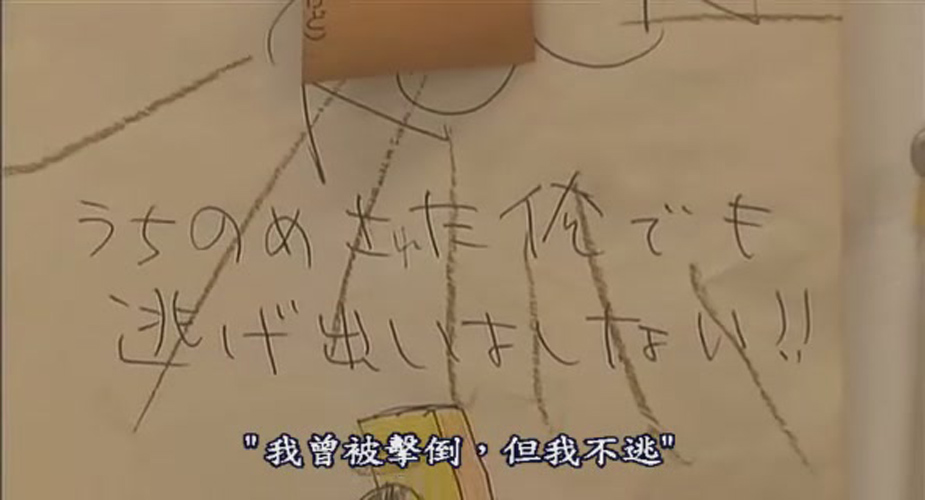 うちのめされた俺でも
逃げ出しはしない!!
"我曾被擊倒，但我不逃"